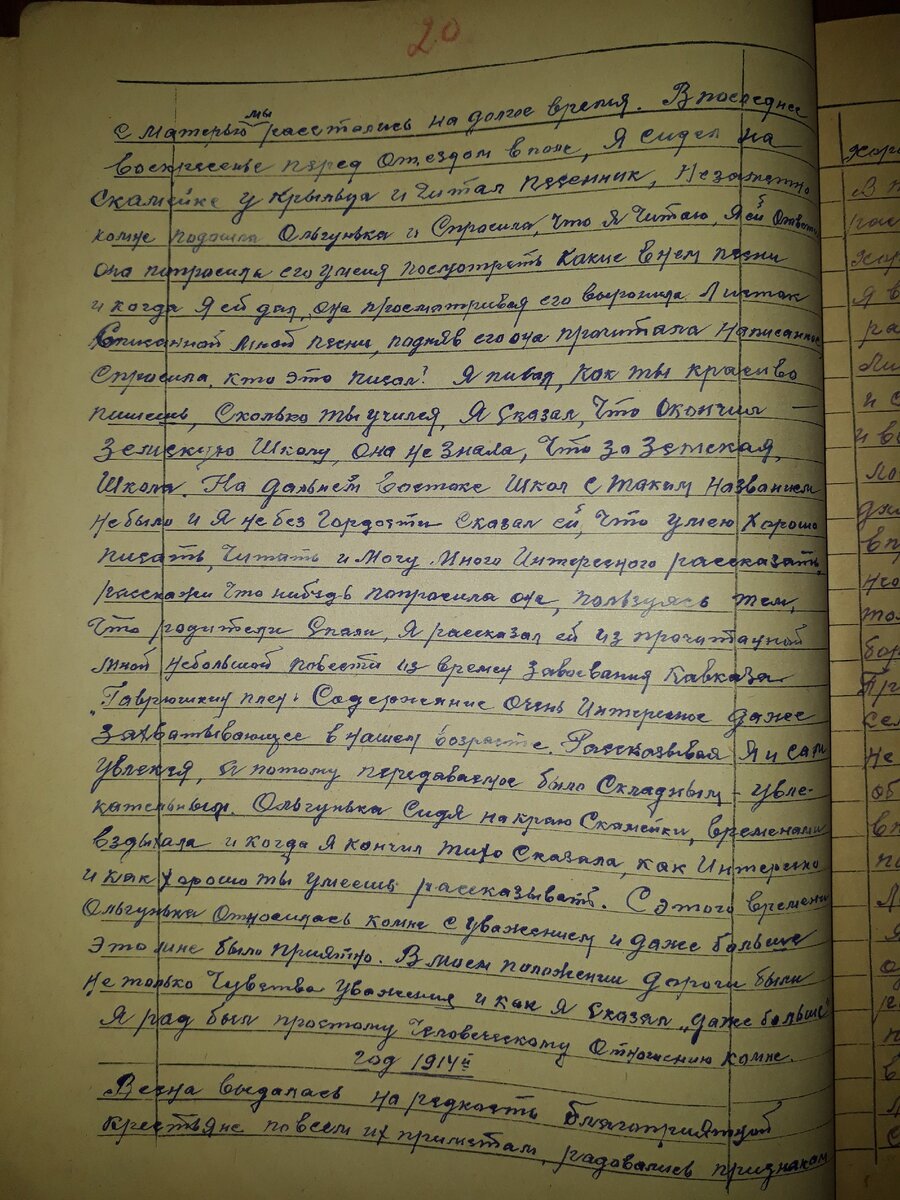 20
с матерью мы расстались на долгое время. В последнее
воскресенье перед отездом в поле, Я сидел на
скамейке у крыльца и читал песенник, Незаметно
комне подошла Ольгунька и Спросила, Что Я Читаю, Я ей Ответил
она попросила его уменя посмотреть Какие в нем песни
и когда Я ей дал, она просматривая его выронила Листок
Списанной мной песни, подняв его она прочитала написанное
Спросила, кто это писал? Я писал, Как ты красиво
пишешь, Сколько ты учился, Я Сказал, Что Окончил
Земскую Школу, Она не Знала, Что За Земская,
Школа. На дальнем востоке Школ с таким Названием
не было и Я не без Гордости Сказал ей, Что умею Хорошо
писать, Читать и Могу Много Интересного рассказать,
расскажи Что нибудь попросила она, пользуясь тем,
Что родители Спали, Я рассказал ей из прочитанной
Мной небольшой повести из времен Завоевания Кавказа
„Гаврюшкин плен. Содержание Очень Интересное даже
Захватывающее в нашем возрасте. Рассказывая Я и сам
увлекся, а потому передаваемое было Складным - увле-
кательным. Ольгунька Сидя на краю Скамейки, временами
вздыхала и когда Я кончил тихо Сказала, как Интересно
и как хорошо ты умеешь рассказывать. С этого времени
Ольгунька Относилась комне с уважением и даже больше
Это мне было приятно. В моем положении дороги были
не только Чувства уважения и как Я Сказал „даже больше"
Я рад был простому Человеческому Отношению комне.
год 1914й
Весна выдалась на редкость благоприятной
Крестьяне по всем их приметам, радовались признакам